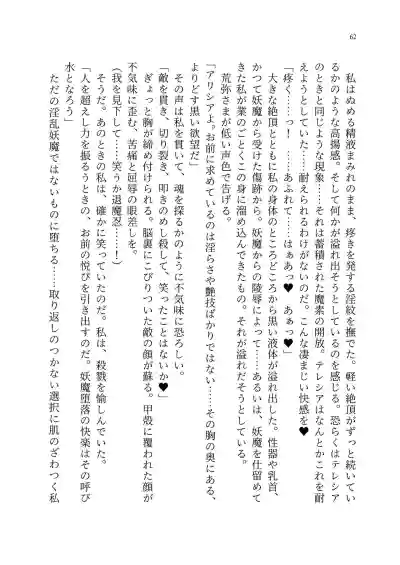 62
私はぬめる精液まみれのまま、疼きを発する淫紋を撫でた。軽い絶頂がずっと続いてい
るかのような高揚感。そして何かが溢れ出そうとしているのを感じる。恐らくはテレシア
のときと同じような現象……それは蓄積された魔素の開放。テレシアはなんとかこれを耐
えようとしていた……耐えられるわけがないのだ。こんな凄まじい快感を♥
「疼く……っ！　……あふれて……はぁあっ♥　あぁっ♥」
大きな絶頂とともに私の身体のところどころから黒い液体が溢れ出した。性器や乳首、
かつて妖魔から受けた傷跡から。妖魔からの陵辱によって……あるいは、妖魔を仕留めて
きた私が業のごとくこの身に溜め込んできたもの。それが溢れだそうとしている。
荒弥さまが低い声色で告げる。
「アリシアよ。お前に求めているのは淫らさや艶技ばかりではない……その胸の奥にある、
よりどす黒い欲望だ」
その声は私を貫いて、魂を探るかのように不気味に恐ろしい。
「敵を貫き、切り裂き、叩きのめし殺して、笑ったことはないか♥」
ぎょっと胸が締め付けられる。脳裏にこびりついた敵の顔が蘇る。甲殻に覆われた顔が
不気味に歪む、苦痛と屈辱の眼差しを。
（我を見下して……笑うか退魔忍……！）
そうだ。あのときの私は、確かに笑っていたのだ。私は、殺戮を愉しんでいた。
「人を超えし力を振るうときの、お前の悦びを引き出すのだ。妖魔堕落の快楽はその呼び
水となろう」
ただの淫乱妖魔ではないものに堕ちる……取り返しのつかない選択に肌のざわつく私